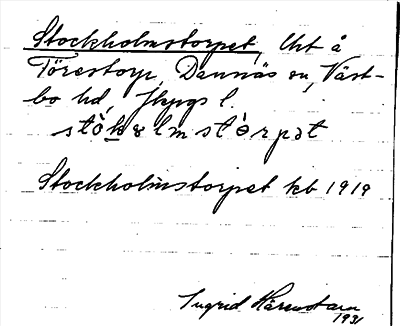 Stockholmstorpet, Uht å
Törestorp, Dannäs sn, Väst-
bo hd, Jkpgs l.
stòkəlmstòrpət
Stockholmstorpet kb 1919
Ingrid
1931